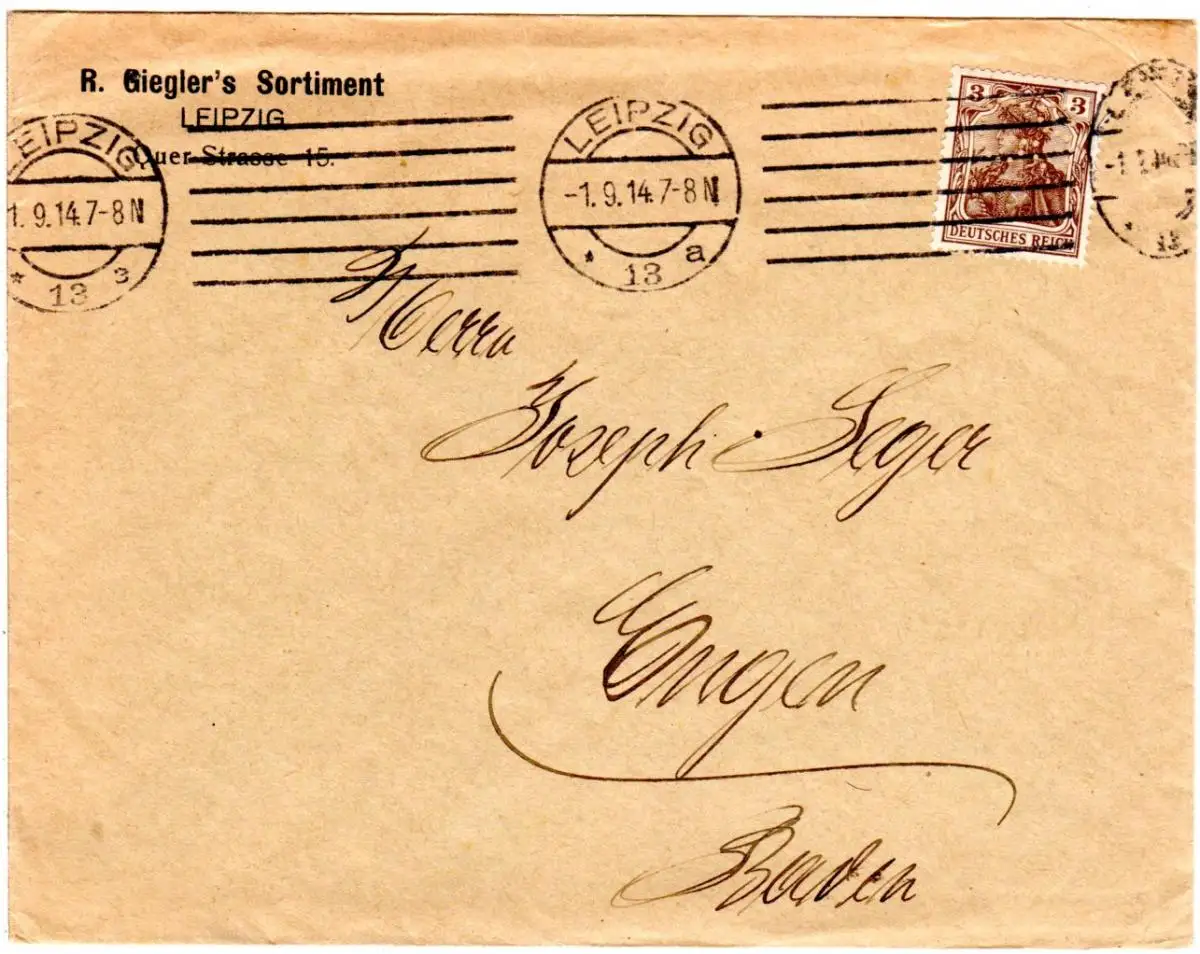 R. Giegler's Sortiment
LEIPZIG
Quer-Strasse 15.
LEIPZIG
1. 9. 14. 7-8 N
* 13 a
LEIPZIG
-1. 9. 14. 7-8 N
* 13 a
3 3
DEUTSCHES REICH
Herrn
Joseph Seger
Engen
Baden